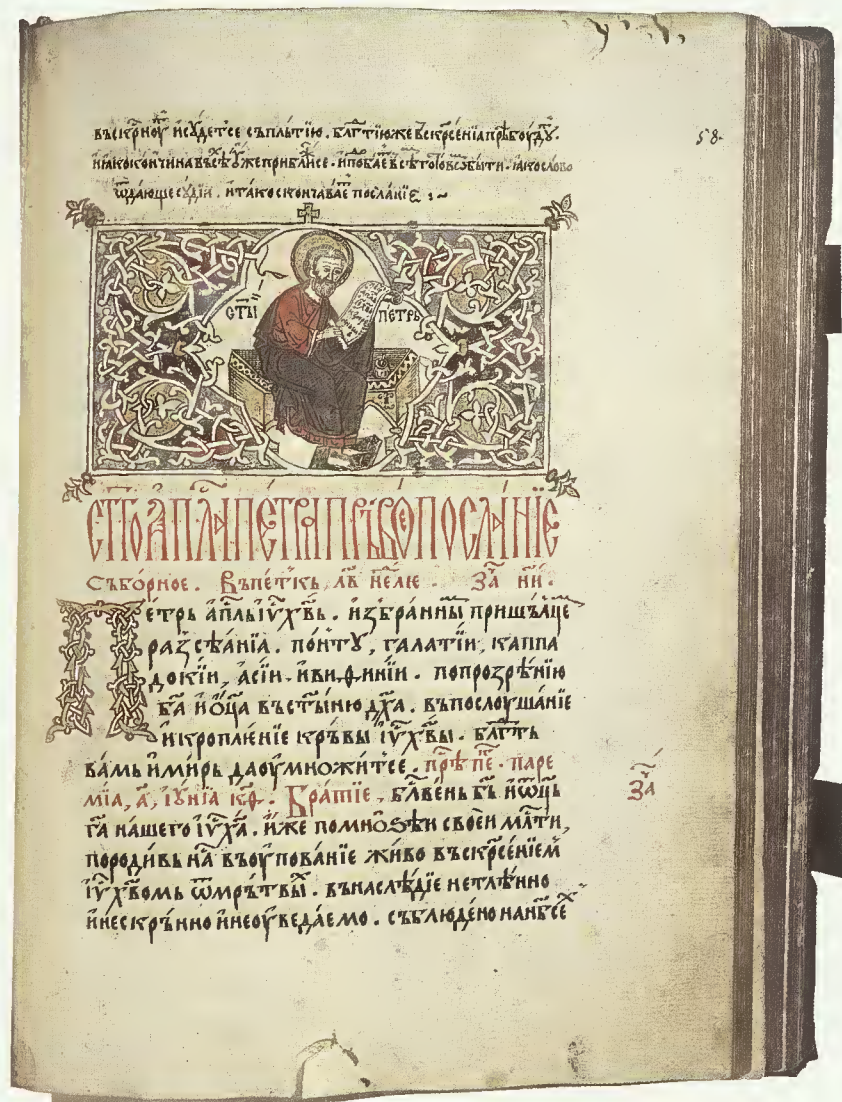 въскр҇ноу҇ и сѫдетсе съ плътїю. бл҇гтїюже въскр҇сенїа прѣбоудꙋ҇.
58.
ѿдающе сѫдїи. и тако скончаваѐ҇ посланїе :~
ст҇ы петрь
ст҇го ап҇ла петра пръвое посланїе
съборное. въ пе҇ткь, л҇в не҇лїе. за҇ н҇и.
Петрь ап҇ль і҇ѵ х҇вь. избранны҇ пришълце҇
разсѣанїа. понту, галатїи, каппа
докїи, асїи. и виѳинїи. по прозрѣнїю
б҇а и ѻ҇ц҇а въ ст҇ыню д҇ха. въ послоушанїе
и кропленїе кръвы і҇ѵ х҇вы. бл҇гть
вамь и мирь да оумножитсе. прѣ҇ п҇е. паре
мїа, а҃, їꙋнїа к҇ѳ. Братїе, бл҇венъ б҇ъ и ѡ҇ць
г҇а нашего і҇ѵ х҇а. иже по мноѕѣи своеи м҇лти,
за҇
породивь на҇ въ оупованїе живо въскр҇сенїем҇
і҇ѵ х҇вомь ѿ мрътвы҇х. въ наслѣдїе нетлѣнно
и нескврънно и неоуведаемо. съблюдено на нб҇се҇х